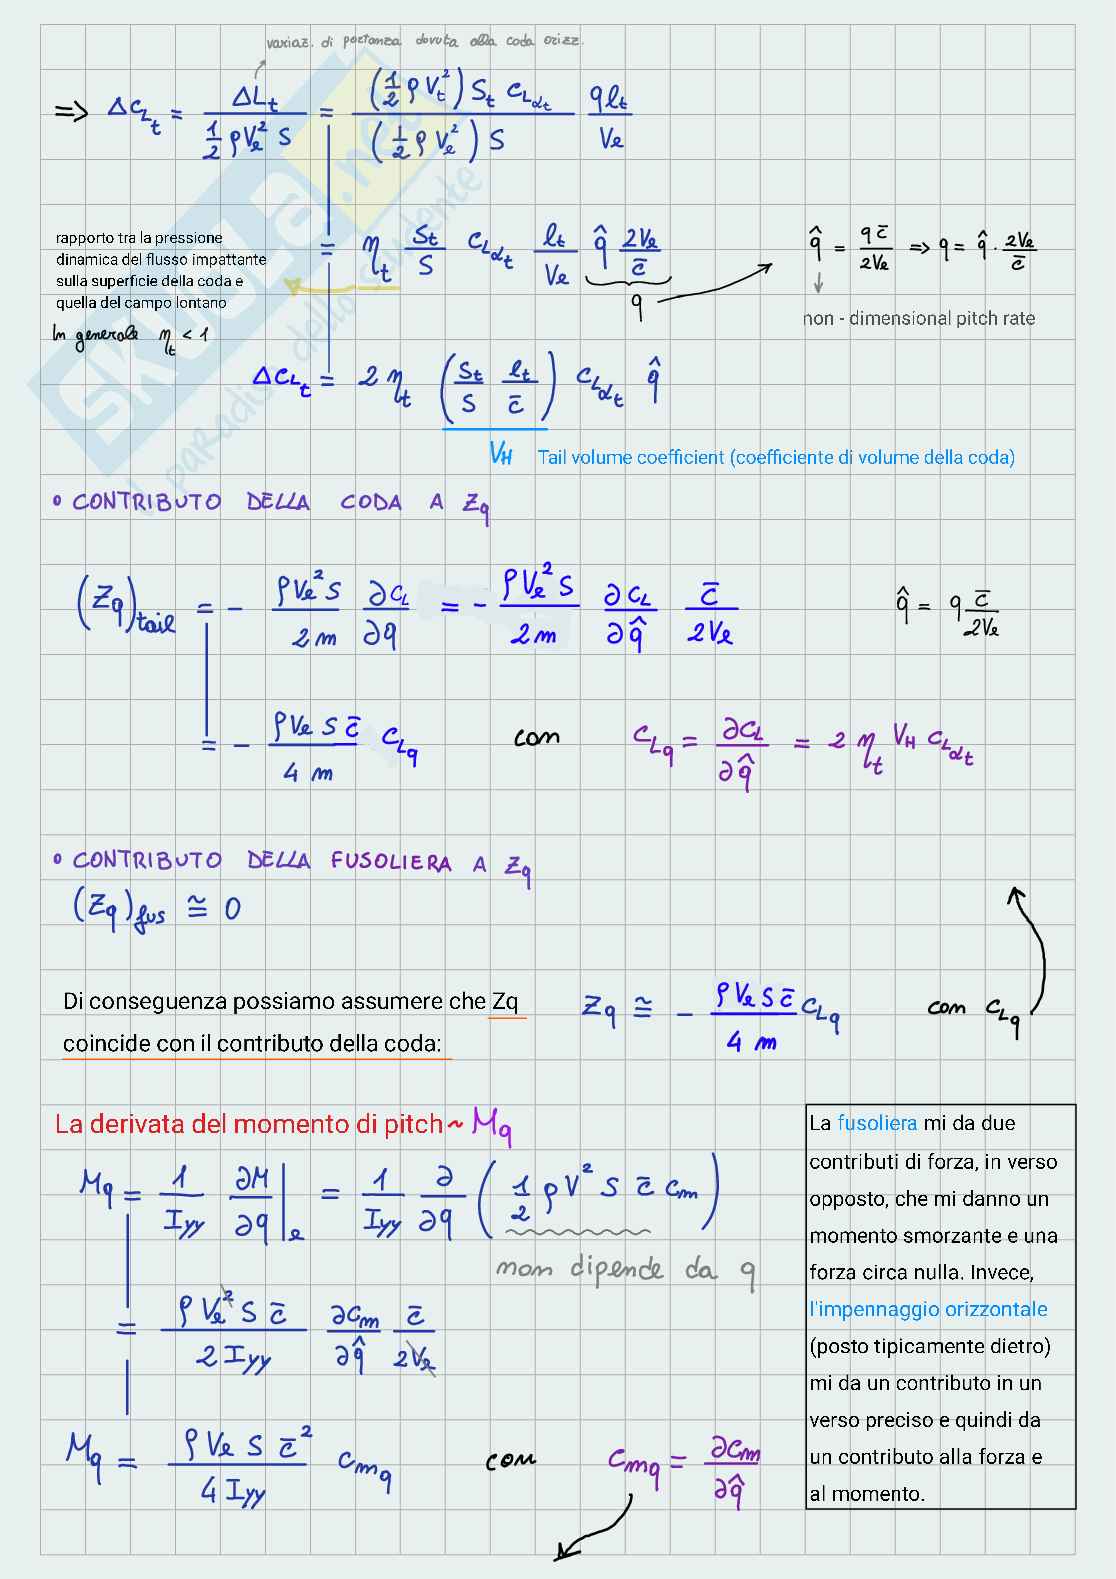 variaz. di portanza dovuta alla coda orizz.
=> ΔC_{L_t} = ΔL_t / (½ ρ V_e² S) = (½ ρ V_t²) S_t C_{L_{α_t}} / ((½ ρ V_e²) S) · q l_t / V_e
rapporto tra la pressione
dinamica del flusso impattante
sulla superficie della coda e
quella del campo lontano
In generale η_t < 1
= η_t S_t/S C_{L_{α_t}} l_t/V_e q̂ 2V_e/c̄
q
q̂ = q c̄ / 2V_e => q = q̂ · 2V_e / c̄
non - dimensional pitch rate
ΔC_{L_t} = 2 η_t (S_t/S l_t/c̄) C_{L_{α_t}} q̂
V_H Tail volume coefficient (coefficiente di volume della coda)
• CONTRIBUTO DELLA CODA A Z_q
(Z_q)_{tail} = - ρ V_e² S / 2m ∂C_L/∂q = - ρ V_e² S / 2m ∂C_L/∂q̂ c̄/2V_e
q̂ = q c̄/2V_e
= - ρ V_e S c̄ / 4m C_{L_q} con C_{L_q} = ∂C_L/∂q̂ = 2 η_t V_H C_{L_{α_t}}
• CONTRIBUTO DELLA FUSOLIERA A Z_q
(Z_q)_{fus} ≅ 0
Di conseguenza possiamo assumere che Zq
coincide con il contributo della coda:
Z_q ≅ - ρ V_e S c̄ / 4m C_{L_q} con C_{L_q}
La derivata del momento di pitch ~ M_q
M_q = 1/I_{yy} ∂M/∂q |_e = 1/I_{yy} ∂/∂q (½ ρ V² S c̄ C_m)
non dipende da q
= ρ V_e² S c̄ / 2 I_{yy} ∂C_m/∂q̂ c̄/2V_e
M_q = ρ V_e S c̄² / 4 I_{yy} C_{m_q} con C_{m_q} = ∂C_m/∂q̂
La fusoliera mi da due
contributi di forza, in verso
opposto, che mi danno un
momento smorzante e una
forza circa nulla. Invece,
l'impennaggio orizzontale
(posto tipicamente dietro)
mi da un contributo in un
verso preciso e quindi da
un contributo alla forza e
al momento.
skuola.net
il paradiso dello studente